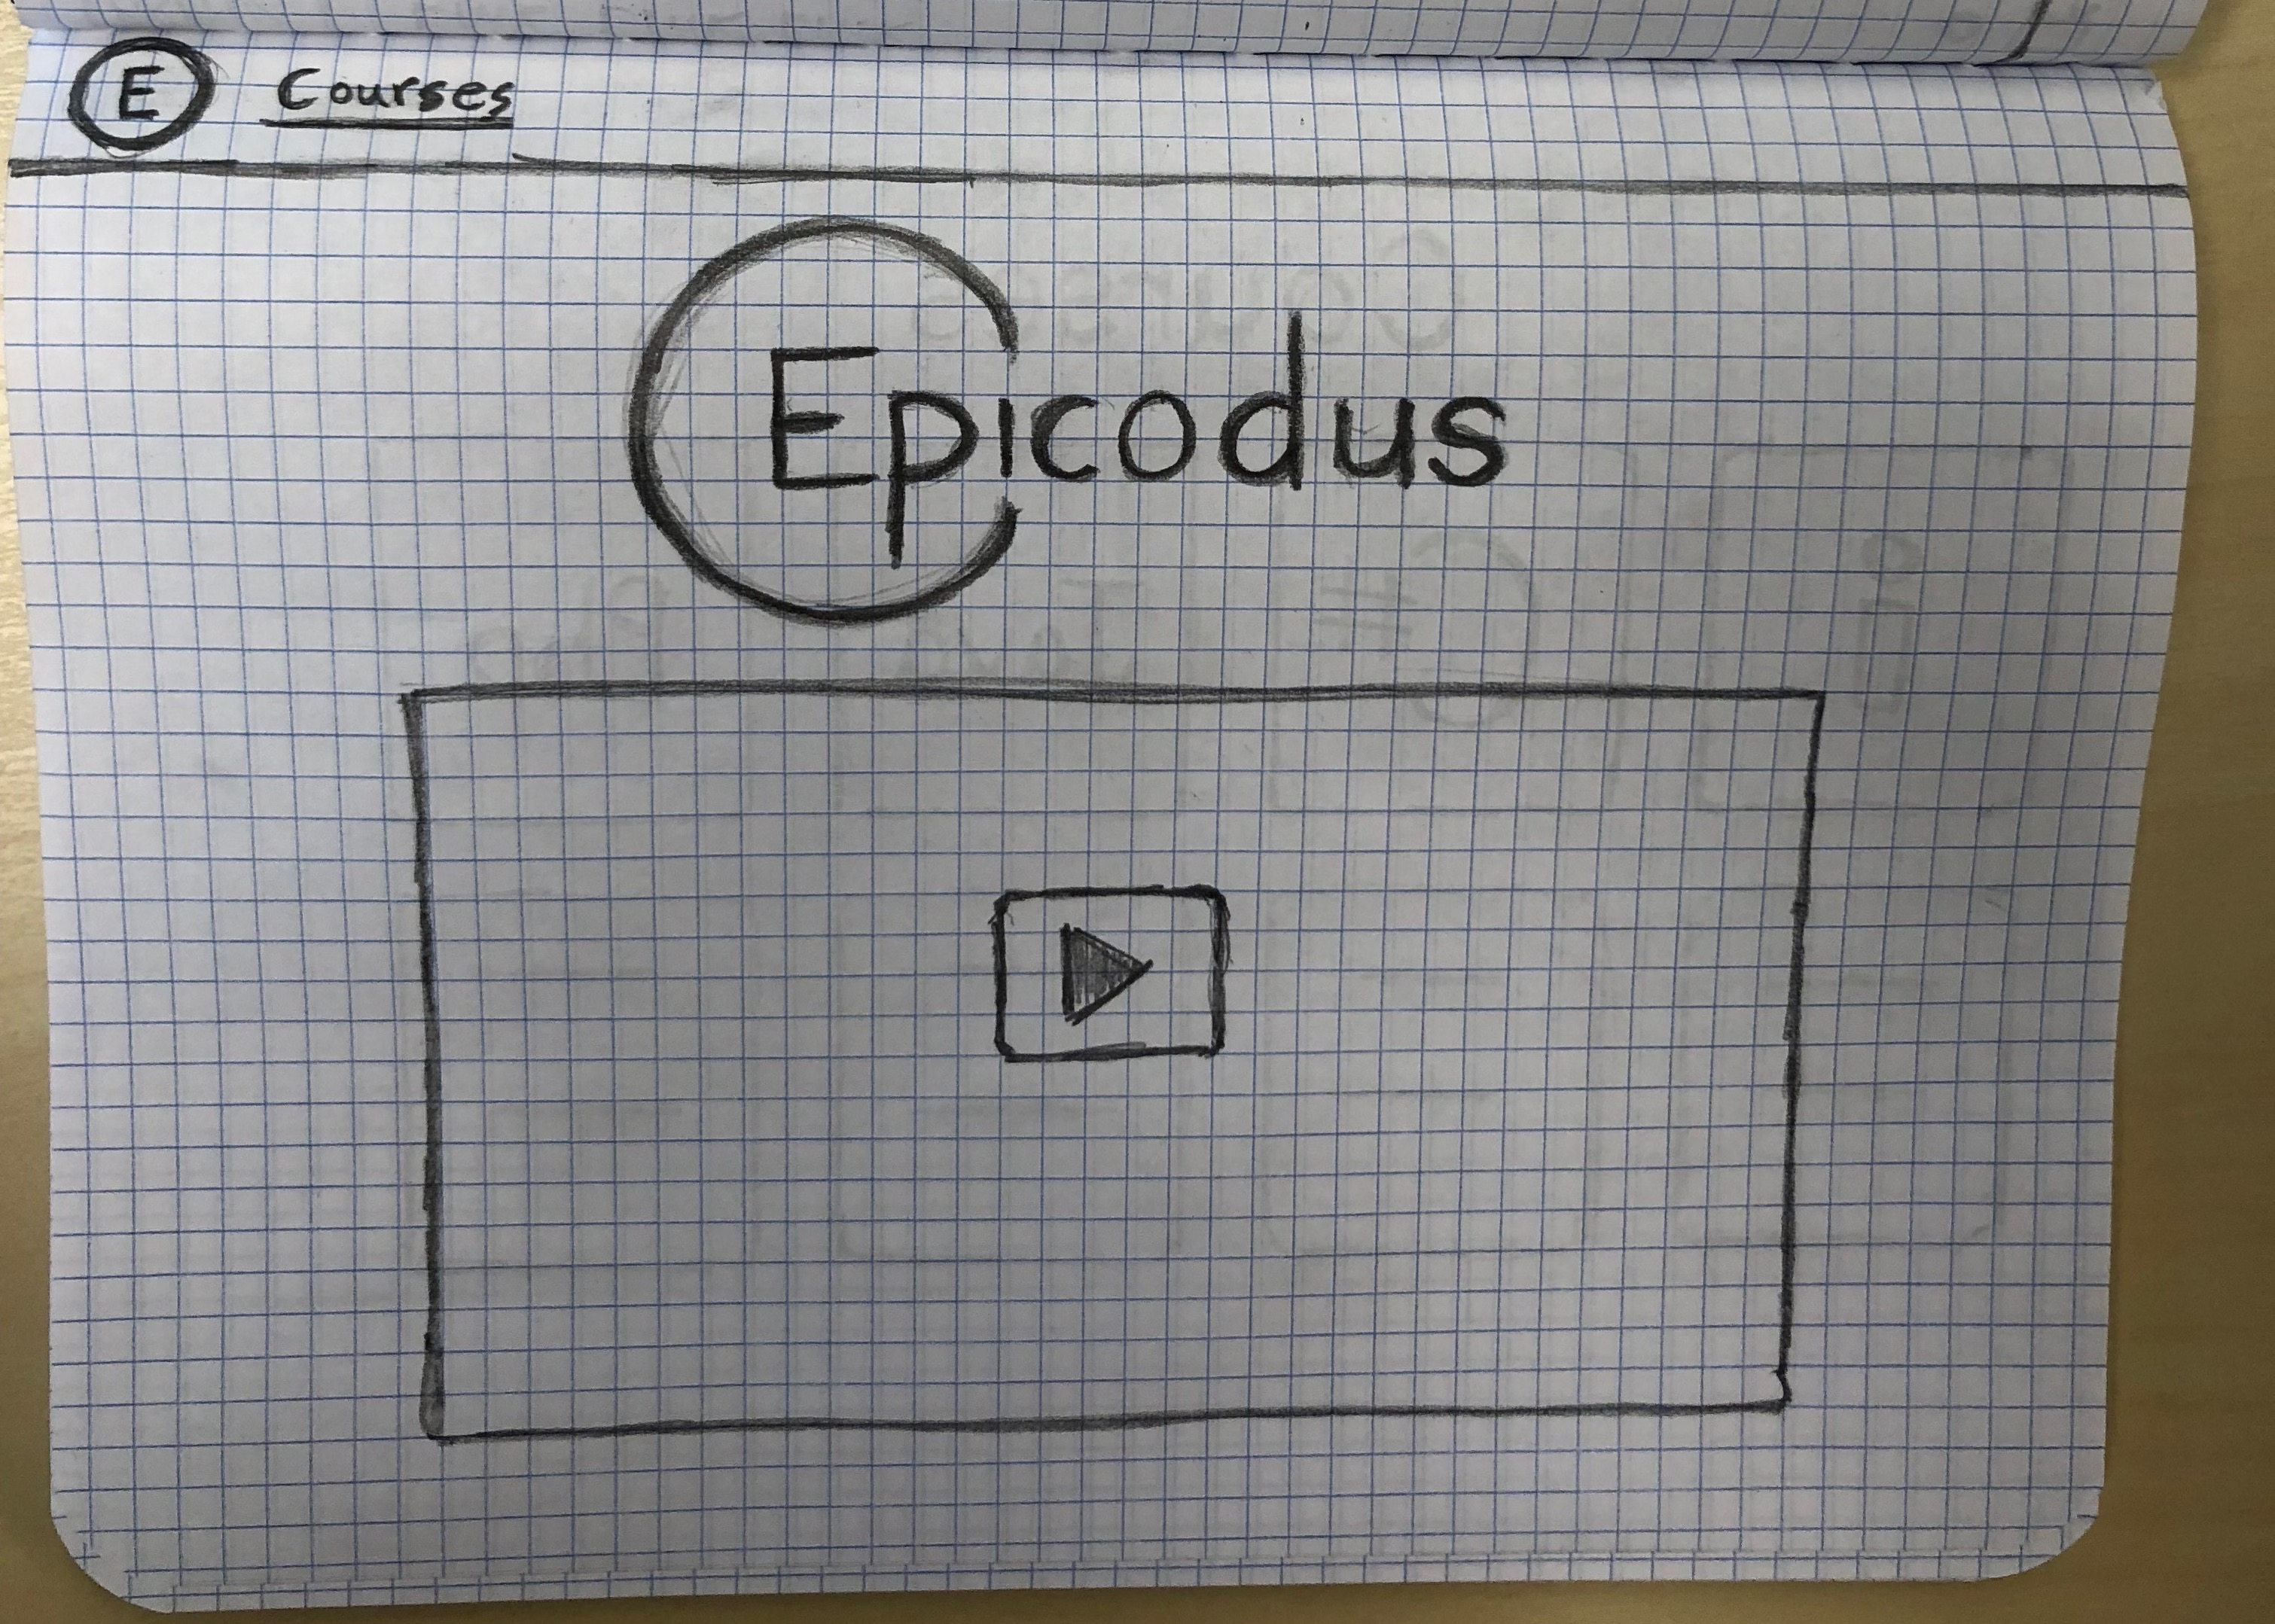 E Courses
Epicodus